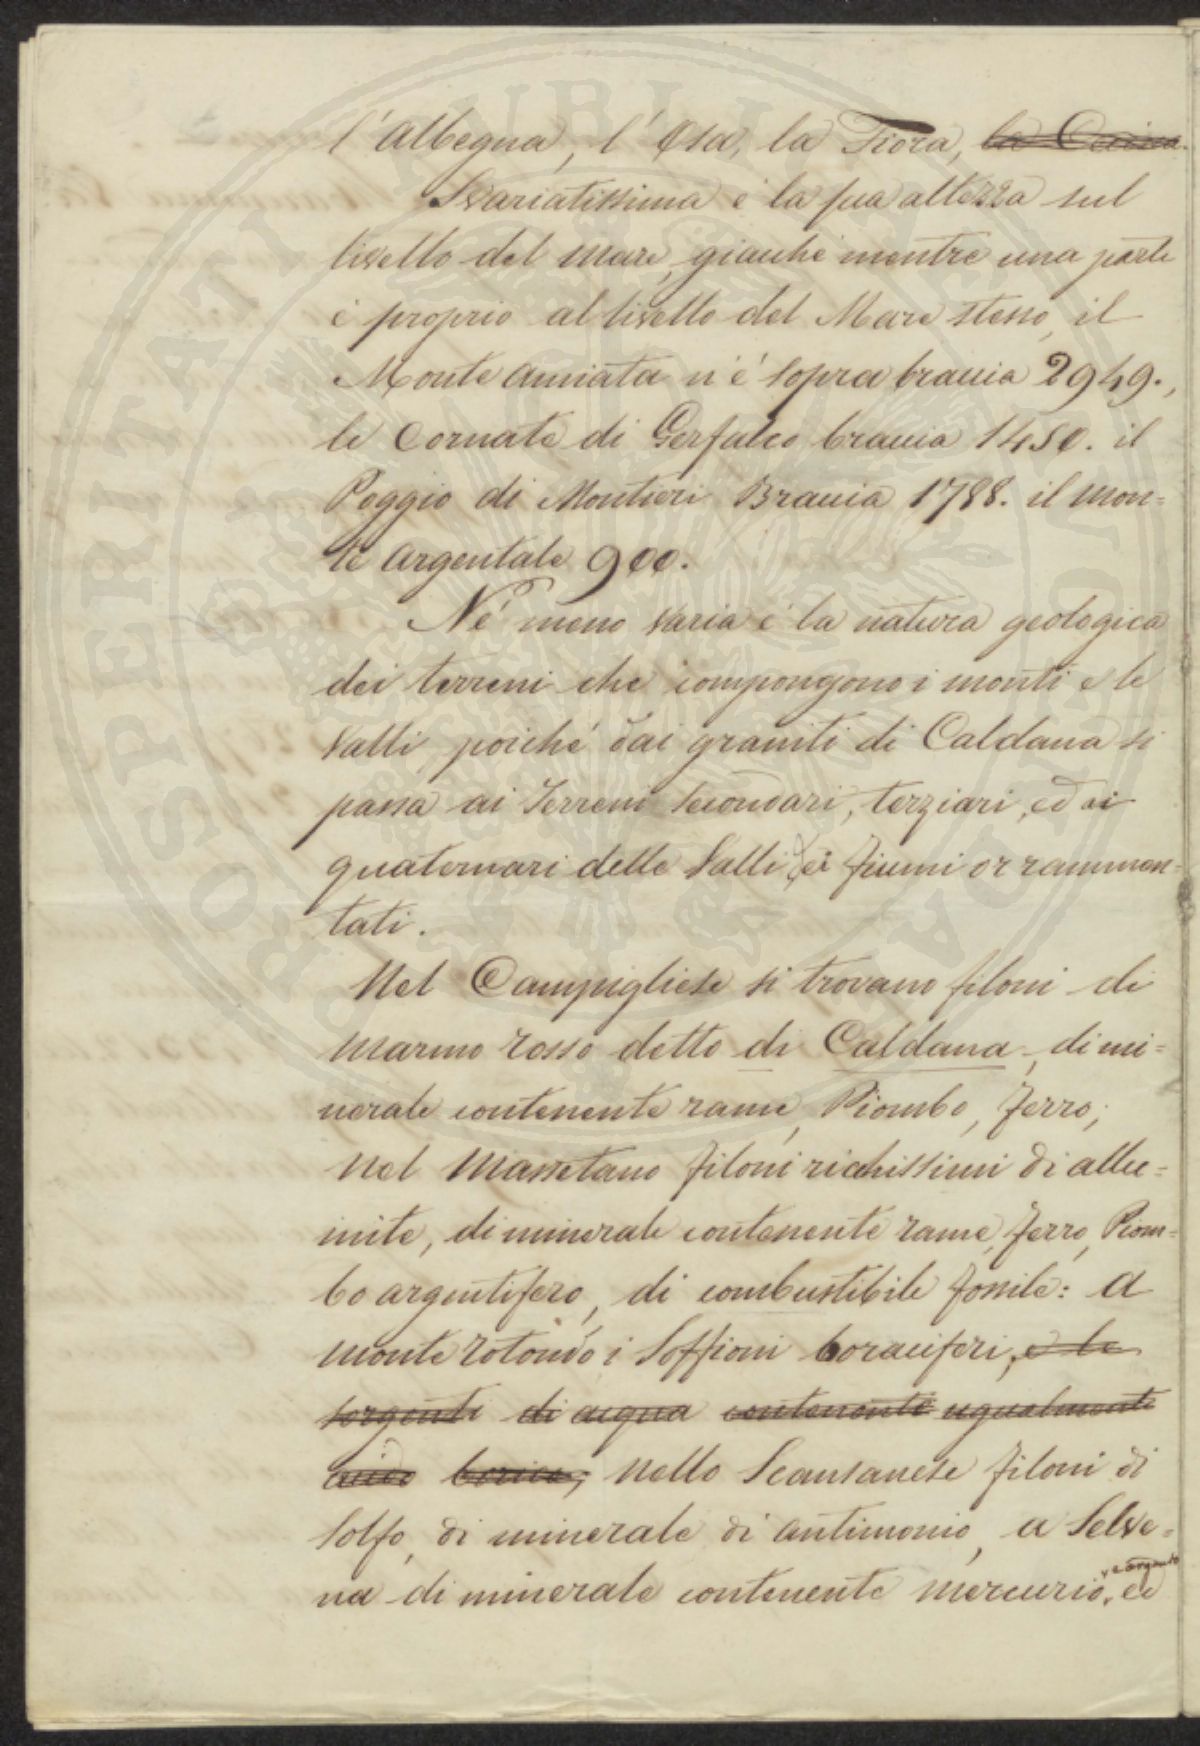 l'Albegna, l'Osa, la Fiora, la Cecina.
Svariatissima è la sua altezza sul
livello del mare, giacché mentre una parte
è proprio al livello del Mare stesso, il
Monte Amiata n'è sopra braccia 2949.,
le Cornate di Gerfalco braccia 1450. il
Poggio di Montieri Braccia 1788. il mon=
te Argentale 900.
Né meno varia è la natura geologica
dei terreni che compongono i monti e le
Valli, poiché dai graniti di Caldana si
passa ai Terreni secondari, terziari, ed ai
quaternari delle Valli ei fiumi or rammen=
tati.
Nel Campigliese si trovano filoni di
marmo rosso detto di Caldana, di mi=
nerale contenente rame, Piombo, Ferro;
nel Massetano filoni richissimi di allu=
inite, di minerale contenente rame, ferro, Piom=
bo argentifero, di combustibile fossile: a
monte rotondo i Soffioni boraciferi, e le
sorgenti di acqua contenenti ugualmente
acido borico; nello Scansanese filoni di
Solfo, di minerale di antimonio, a Selve=
na di minerale contenente mercurio, ed
PROSPERITATI PUBLICAE